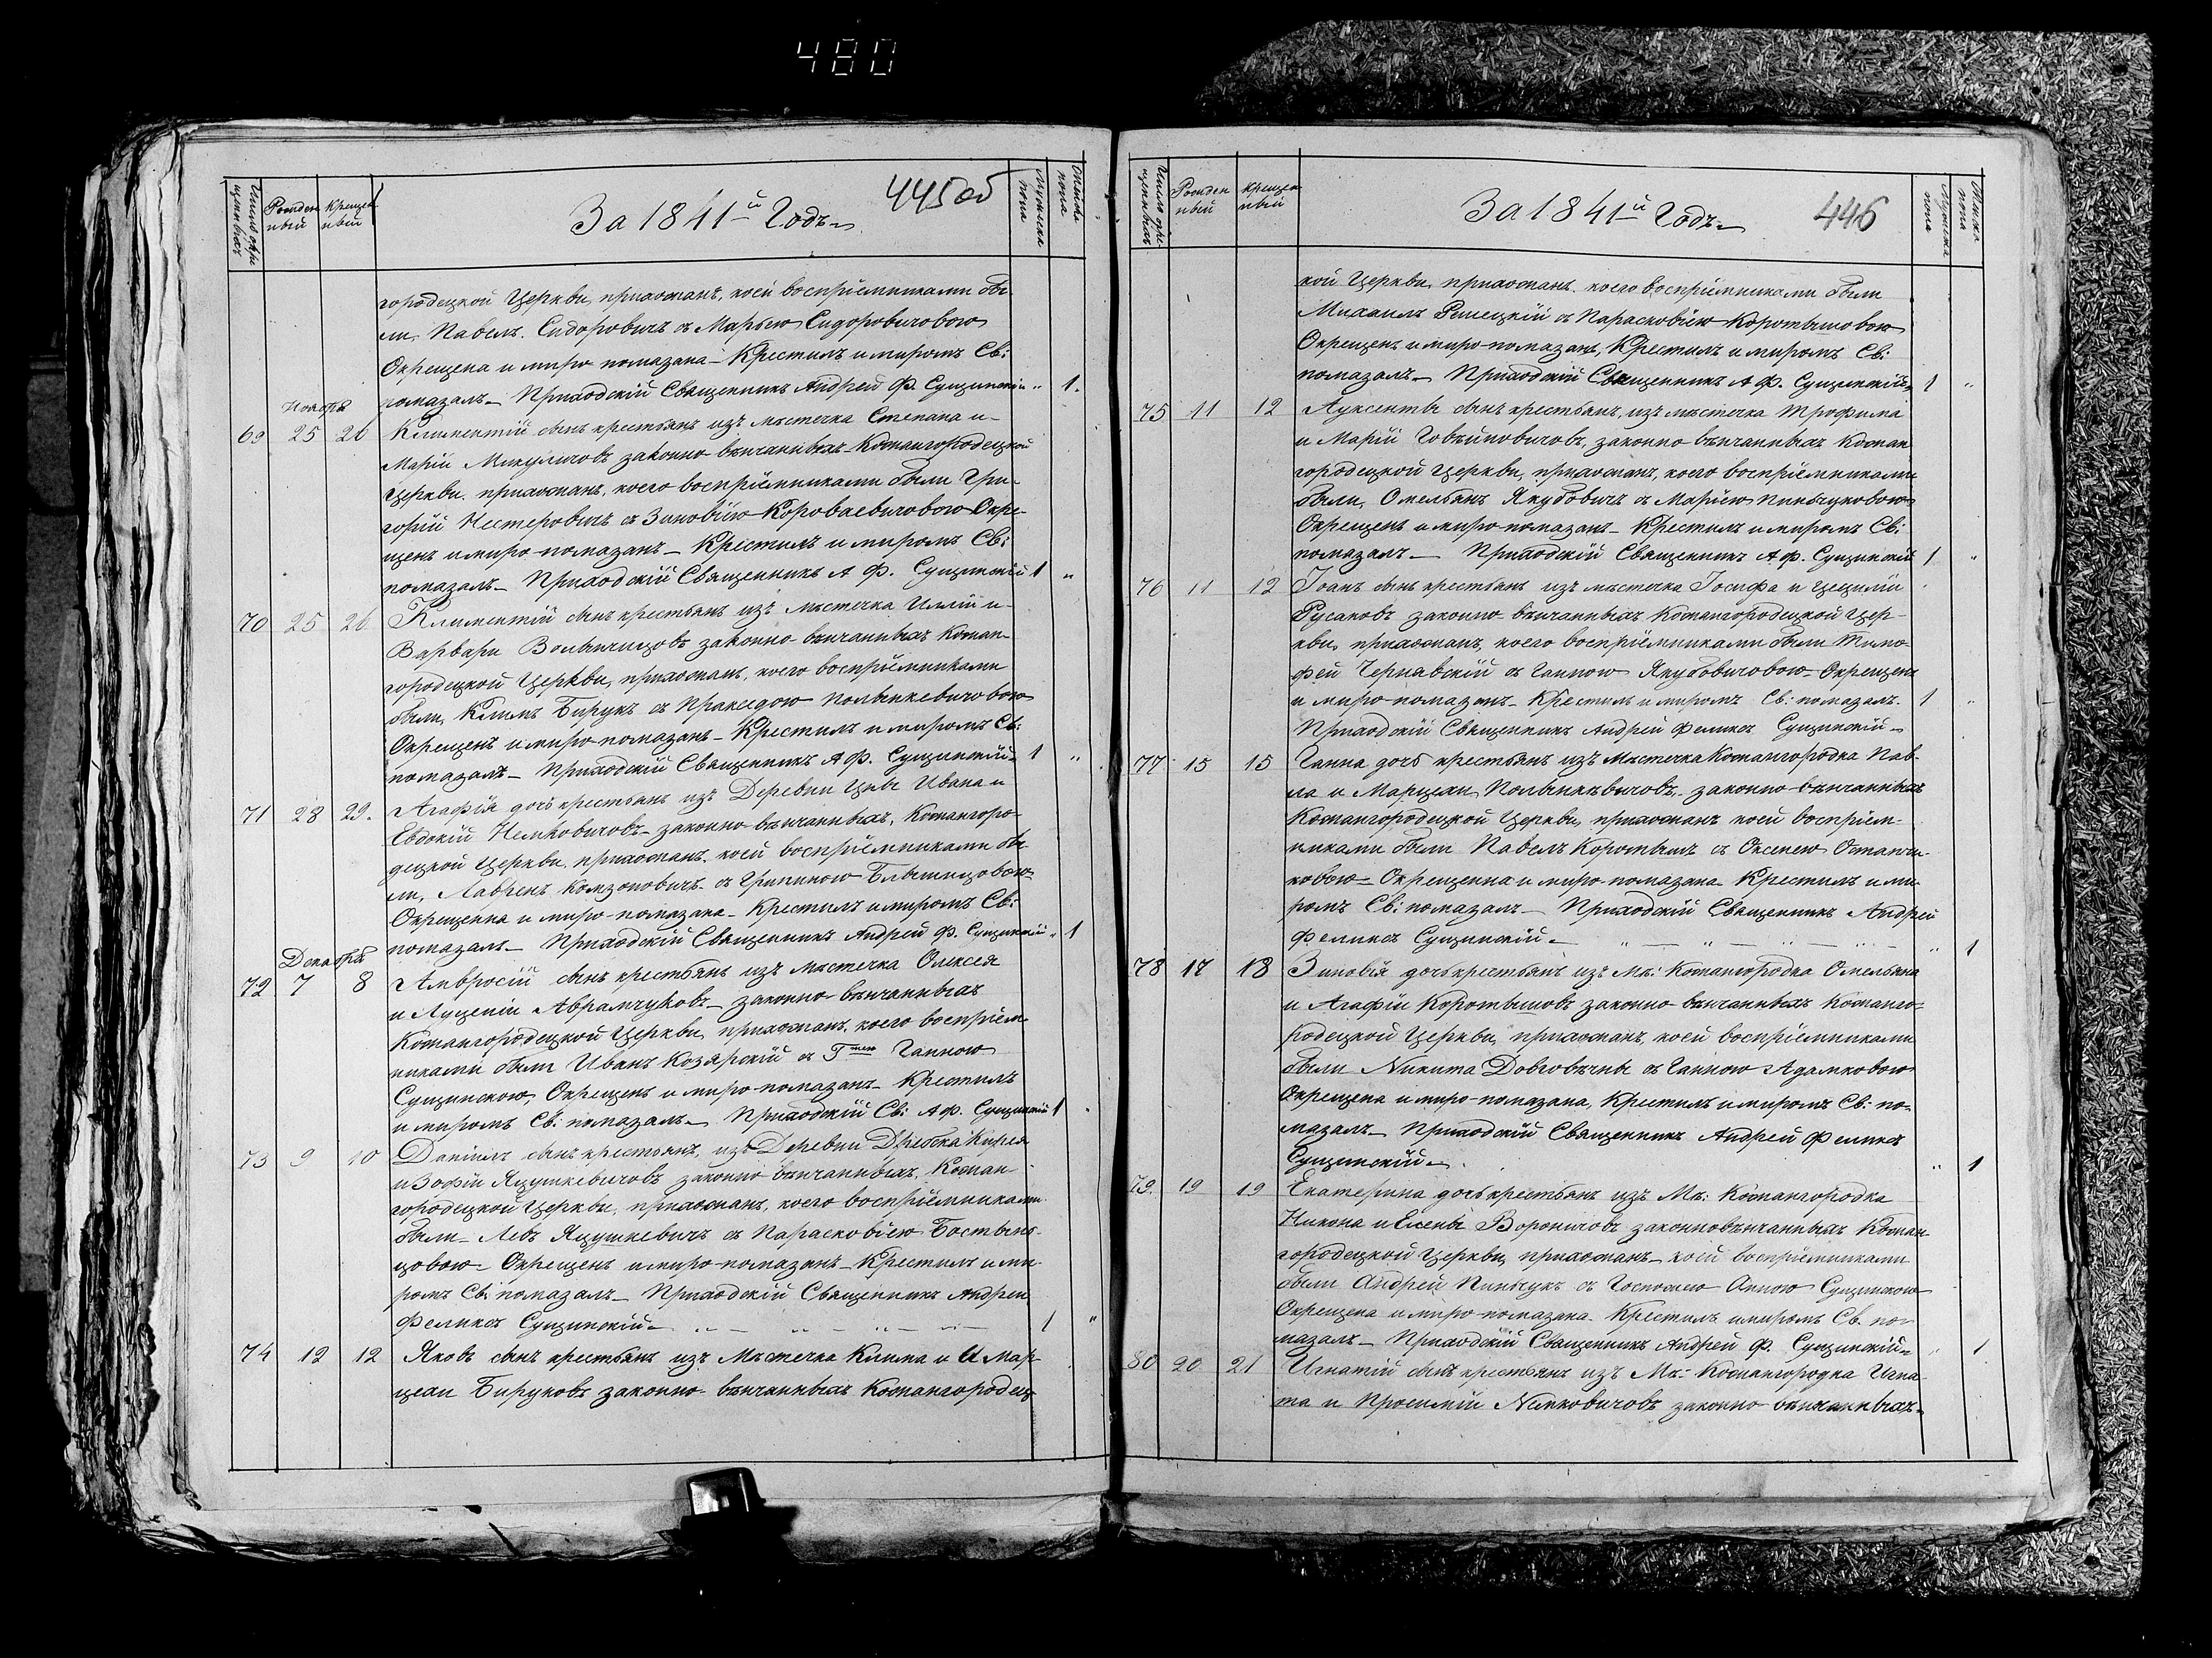 480
Рожден
ный
крещен
ный
За 1841й Годъ
445 об
городецкой Церкви, прихожанъ, коей воспріемниками бы
ли, Павелъ Сидоровичъ съ Марьею Сидоровичовою
Окрещена и миро помазана – Крестилъ и миромъ Св:
помазалъ – Приходскій Священникъ Андрей Ф. Сущинскій " 1.
Ноября
69 25 26 Климентій сынъ крестьянъ изъ мѣстечка Степана и
Маріи Микуличовъ законно вѣнчанныхъ – Кожангородецкой
Церкви прихожанъ, коего воспріемниками были Гри-
горій Нестеровичъ съ Зиновіею Короваевичовою Окре-
щенъ и миро-помазанъ – Крестилъ и миромъ Св:
помазалъ – Приходскій Священникъ А Ф. Сущинскій 1 "
70 25 26 Климентій сынъ крестьянъ изъ мѣстечка Иліи и
Варвари законно вѣнчанныхъ Кожан-
городецкой Церкви, прихожанъ, коего воспріемниками
были, Климъ Бирукъ съ Пракседою Полынкевичовою
Окрещенъ и миро-помазанъ – Крестилъ и миромъ Св:
помазалъ – Приходскій Священникъ А Ф. Сущинскій 1 "
71 28 29. Агафія дочь крестьянъ изъ Деревни Цны Ивана и
Евдокіи Немковичовъ – законно вѣнчанныхъ, Кожангоро-
децкой Церкви, прихожанъ, коей воспріемниками бы
ли, Лавренъ съ Грипиною
Окрещенна и миро-помазана – Крестилъ и миромъ Св:
помазалъ – Приходскій Священникъ Андрей Ф. Сущинскій " 1
Декабря
72 7 8 Амвросій сынъ крестьянъ изъ мѣстечка Олексея
и Луцеціи Аврамчуковъ – законно вѣнчанныхъ
Кожангородецкой Церкви, прихожанъ, коего воспріем-
никами были Иванъ Козярскій съ Ганною
Сущинскою, Окрещенъ и миро-помазанъ – Крестилъ
и миромъ Св: помазалъ – Приходскій Св: А Ф. Сущинскій 1
73 9 10 Даніилъ сынъ крестьянъ, изъ Деревни Дребска Кирея
и Зофіи Яцушкевичовъ законно вѣнчанныхъ, Кожан-
городецкой Церкви, прихожанъ, коего воспріемниками
были – Левъ Яцушкевичъ съ Парасковіею Бостынь-
цовою – Окрещенъ и миро-помазанъ – Крестилъ и ми-
ромъ Св: помазалъ – Приходскій Священникъ Андрей
Феликсъ Сущинскій – 1 "
74 12 12 Яковъ сынъ крестьянъ изъ Мѣстечка Клима и Мар-
цели Бируковъ законно вѣнчанныхъ Кожангородец-
Рожден
ный
крещен
ный
За 1841й Годъ
446
кой Церкви, прихожанъ, коего воспріемниками были
Михаилъ съ Парасковіею Коротышовою
Окрещенъ и миро-помазанъ, Крестилъ и миромъ Св:
помазалъ – Приходскій Священникъ А Ф. Сущинскій 1 "
75 11 12 Луксентьи сынъ крестьянъ, изъ мѣстечка Трофима
и Маріи Говѣйновичовъ, законно вѣнчанныхъ Кожан
городецкой Церкви, прихожанъ, коего воспріемниками
были, Омельянъ Якубовичъ съ Маріею Пинчуковою
Окрещенъ и миро-помазанъ – Крестилъ и миромъ Св:
помазалъ – Приходскій Священникъ А Ф. Сущинскій 1 "
76 11 12 Іоанъ сынъ крестьянъ изъ мѣстечка Іосифа и Цециліи
Русаковъ законно-вѣнчанныхъ Кожангородецкой Цер-
кви, прихожанъ, коего воспріемниками были Тимо-
фей Чернявскій съ Ганною Якубовичовою – Окрещенъ
и миро-помазанъ – Крестилъ и миромъ Св: помазалъ 1
Приходскій Священникъ Андрей Феликсъ Сущинскій –
77 15 15 Ганна дочь крестьянъ изъ Мѣстечка Кожангородка Пав-
ла и Марцели Полынкѣвичовъ, законно-вѣнчанныхъ
Кожангородецкой Церкви, прихожанъ коей воспріем-
никами были Павелъ Коротышъ съ Оксенею Останчи-
ковою – Окрещенна и миро-помазана – Крестилъ и ми-
ромъ Св: помазалъ – Приходскій Священникъ Андрей
Феликсъ Сущинскій – " 1
78 17 18 Зиновія дочь крестьянъ изъ Мѣ: Кожангородка Омельяна
и Агафіи Коротышовъ законно-вѣнчанныхъ Кожанго-
родецкой Церкви, прихожанъ, коей воспріемниками
были Никита съ Ганною Адамковою
Окрещена и миро-помазана, Крестилъ и миромъ Св: по-
мазалъ – Приходскій Священникъ Андрей Феликсъ
Сущинскій – " 1
79. 19 19 Екатерина дочь крестьянъ изъ Мѣ: Кожангородка
Никона и Елены Вороничовъ законновѣнчанныхъ Кожан-
городецкой Церкви, прихожанъ – коей воспріемниками
были Андрей Пинчукъ съ Госпожею Анною Сущинскою
Окрещена и миро-помазана. Крестилъ и миромъ Св. по-
мазалъ – Приходскій Священникъ Андрей Ф. Сущинскій " 1
80 20 21 Игнатій сынъ крестьянъ изъ Мѣ: Кожангородка Игна-
та и Просимліи Nимковичовъ законно вѣнчанныхъ